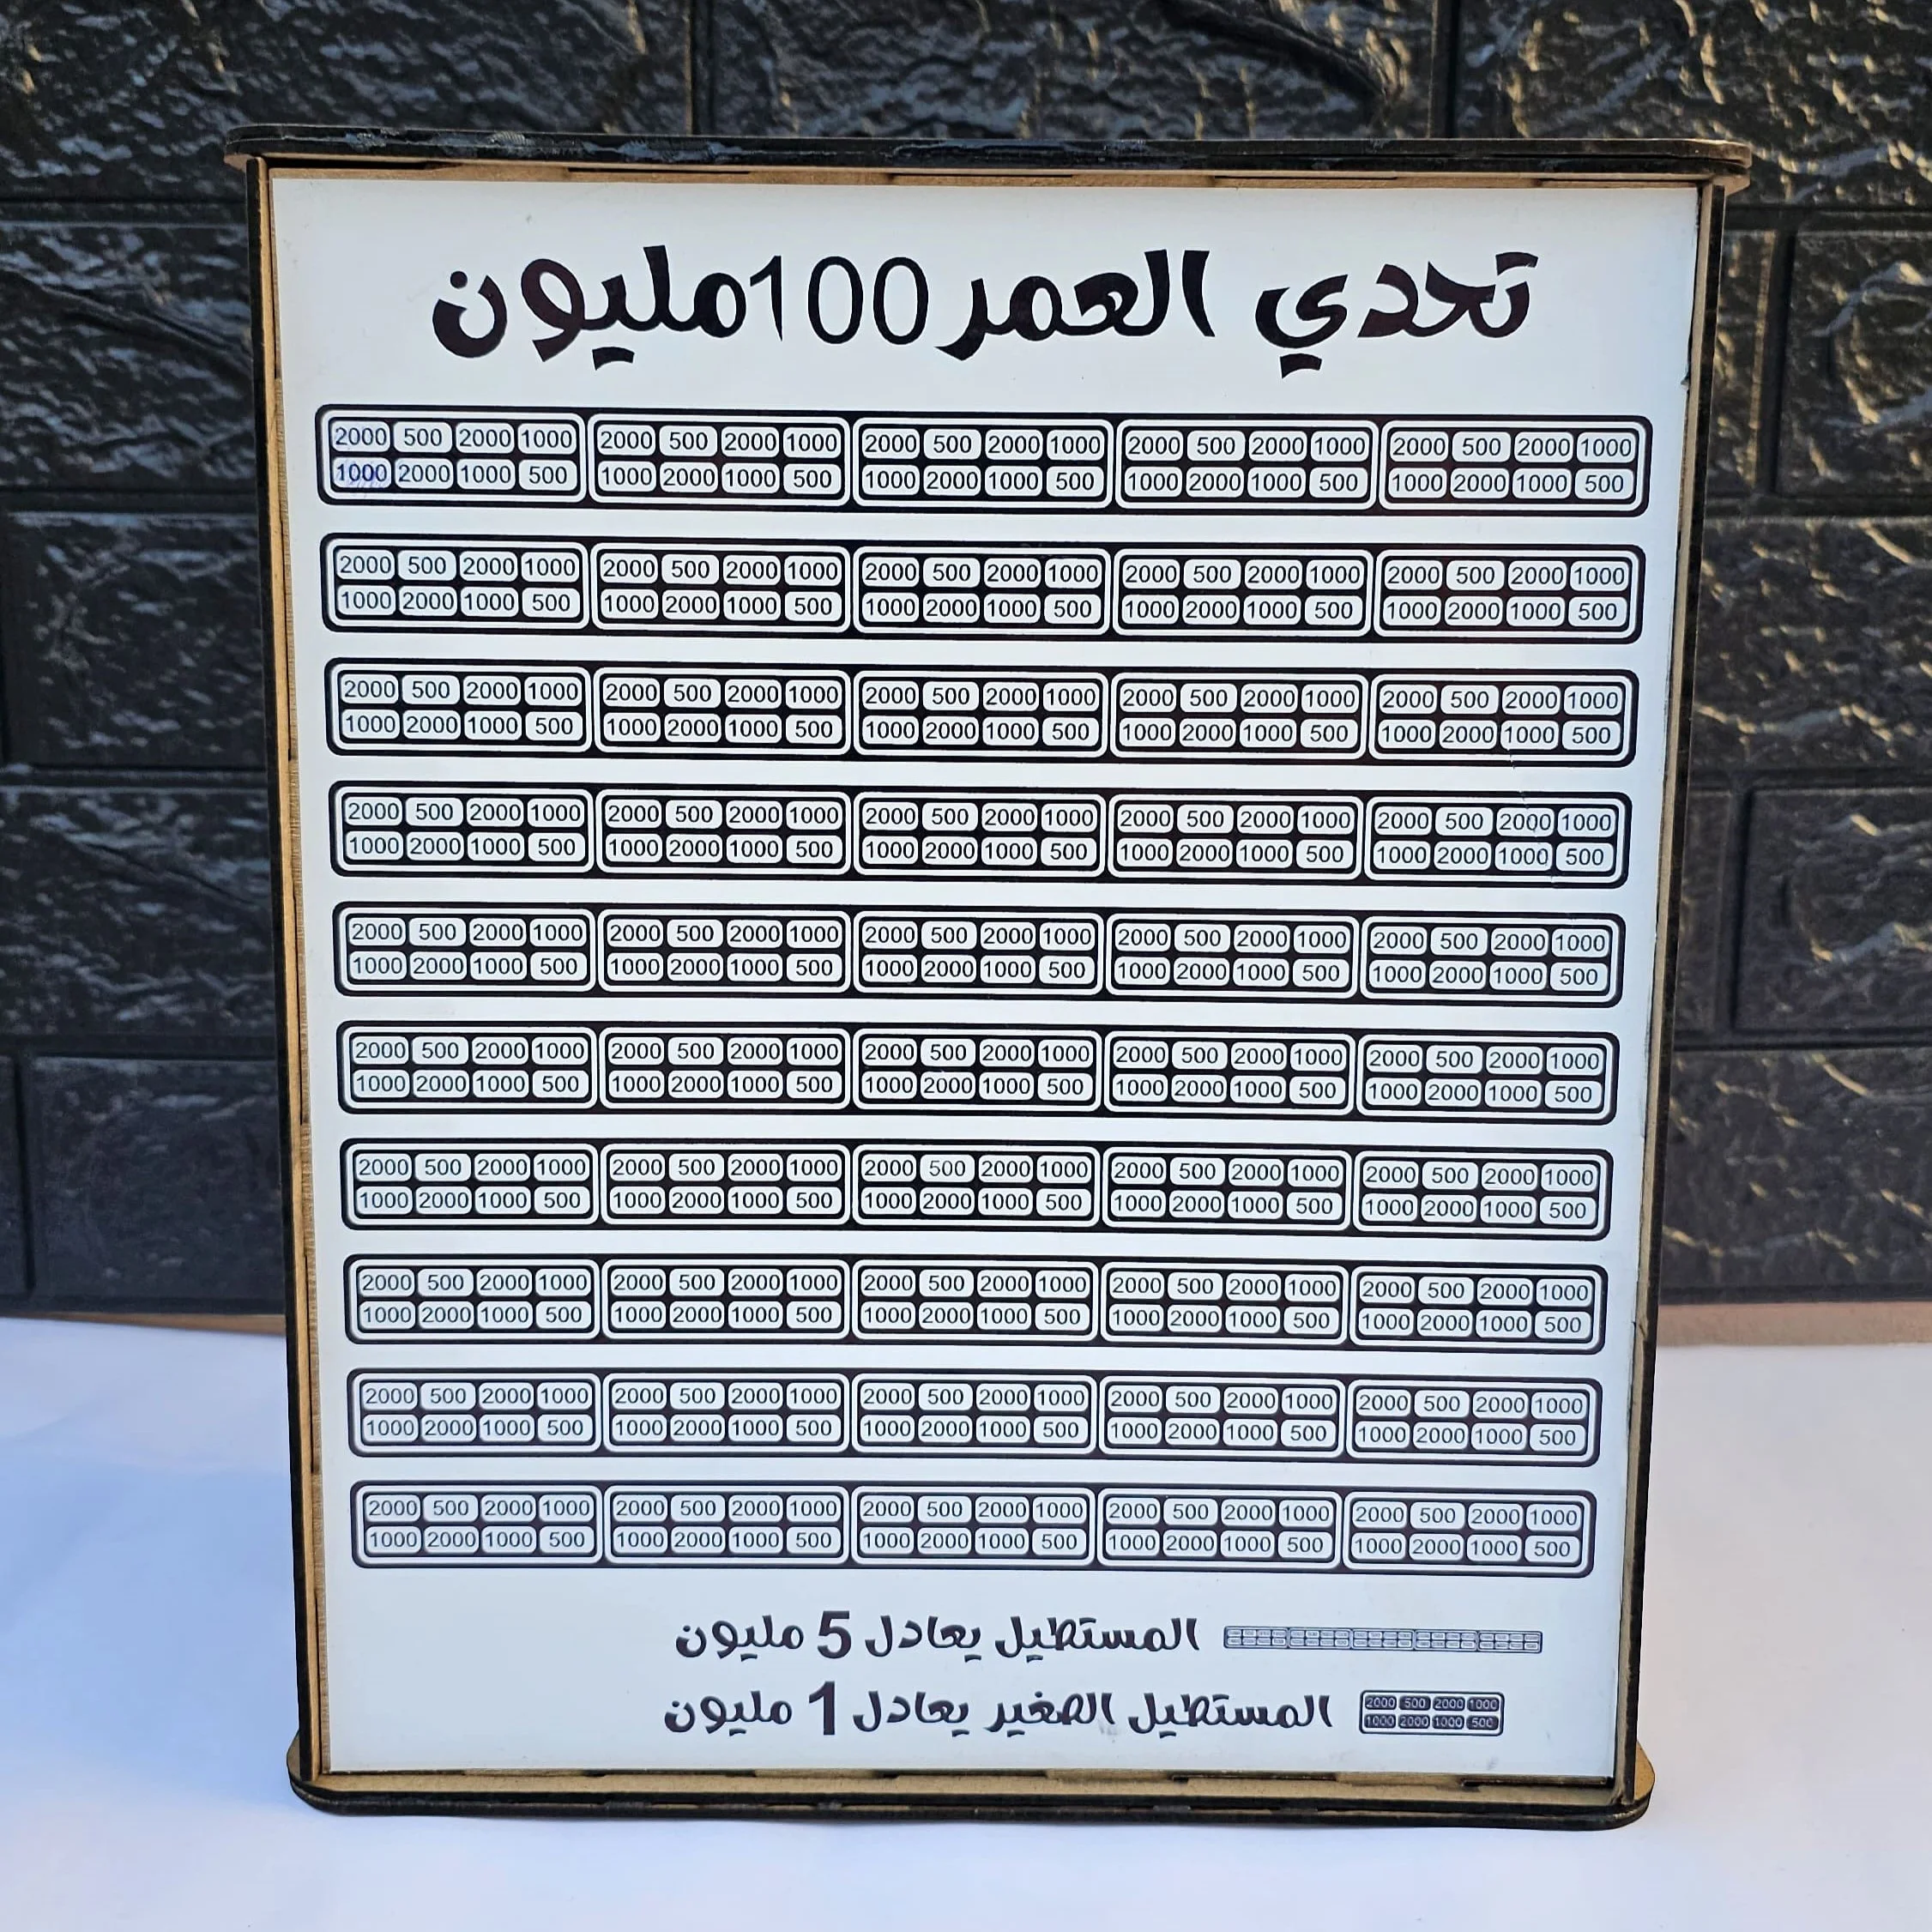 تحدي العمر 100 مليون
2000 500 2000 1000 2000 500 2000 1000 2000 500 2000 1000 2000 500 2000 1000 2000 500 2000 1000
1000 2000 1000 500 1000 2000 1000 500 1000 2000 1000 500 1000 2000 1000 500 1000 2000 1000 500
2000 500 2000 1000 2000 500 2000 1000 2000 500 2000 1000 2000 500 2000 1000 2000 500 2000 1000
1000 2000 1000 500 1000 2000 1000 500 1000 2000 1000 500 1000 2000 1000 500 1000 2000 1000 500
2000 500 2000 1000 2000 500 2000 1000 2000 500 2000 1000 2000 500 2000 1000 2000 500 2000 1000
1000 2000 1000 500 1000 2000 1000 500 1000 2000 1000 500 1000 2000 1000 500 1000 2000 1000 500
2000 500 2000 1000 2000 500 2000 1000 2000 500 2000 1000 2000 500 2000 1000 2000 500 2000 1000
1000 2000 1000 500 1000 2000 1000 500 1000 2000 1000 500 1000 2000 1000 500 1000 2000 1000 500
2000 500 2000 1000 2000 500 2000 1000 2000 500 2000 1000 2000 500 2000 1000 2000 500 2000 1000
1000 2000 1000 500 1000 2000 1000 500 1000 2000 1000 500 1000 2000 1000 500 1000 2000 1000 500
2000 500 2000 1000 2000 500 2000 1000 2000 500 2000 1000 2000 500 2000 1000 2000 500 2000 1000
1000 2000 1000 500 1000 2000 1000 500 1000 2000 1000 500 1000 2000 1000 500 1000 2000 1000 500
2000 500 2000 1000 2000 500 2000 1000 2000 500 2000 1000 2000 500 2000 1000 2000 500 2000 1000
1000 2000 1000 500 1000 2000 1000 500 1000 2000 1000 500 1000 2000 1000 500 1000 2000 1000 500
2000 500 2000 1000 2000 500 2000 1000 2000 500 2000 1000 2000 500 2000 1000 2000 500 2000 1000
1000 2000 1000 500 1000 2000 1000 500 1000 2000 1000 500 1000 2000 1000 500 1000 2000 1000 500
2000 500 2000 1000 2000 500 2000 1000 2000 500 2000 1000 2000 500 2000 1000 2000 500 2000 1000
1000 2000 1000 500 1000 2000 1000 500 1000 2000 1000 500 1000 2000 1000 500 1000 2000 1000 500
2000 500 2000 1000 2000 500 2000 1000 2000 500 2000 1000 2000 500 2000 1000 2000 500 2000 1000
1000 2000 1000 500 1000 2000 1000 500 1000 2000 1000 500 1000 2000 1000 500 1000 2000 1000 500
المستطيل يعادل 5 مليون
المستطيل الصغير يعادل 1 مليون
2000 500 2000 1000
1000 2000 1000 500